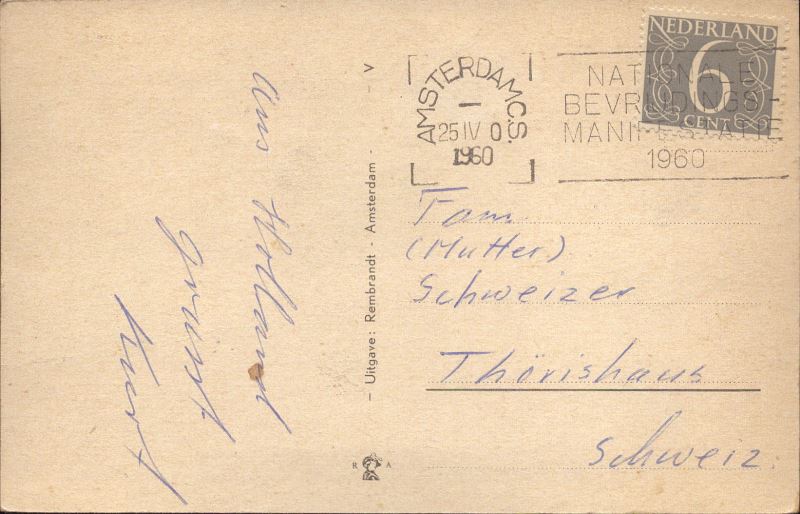 Aus Holland
grüsst
Kurt
– Uitgave: Rembrandt - Amsterdam - V
R A
AMSTERDAM C.S.
25 IV 0
1960
NATIONALE
BEVRIJDINGS-
MANIFESTATIE
1960
NEDERLAND
6
CENT
Fam.
(Mutter)
Schweizer
Thörishaus
Schweiz.